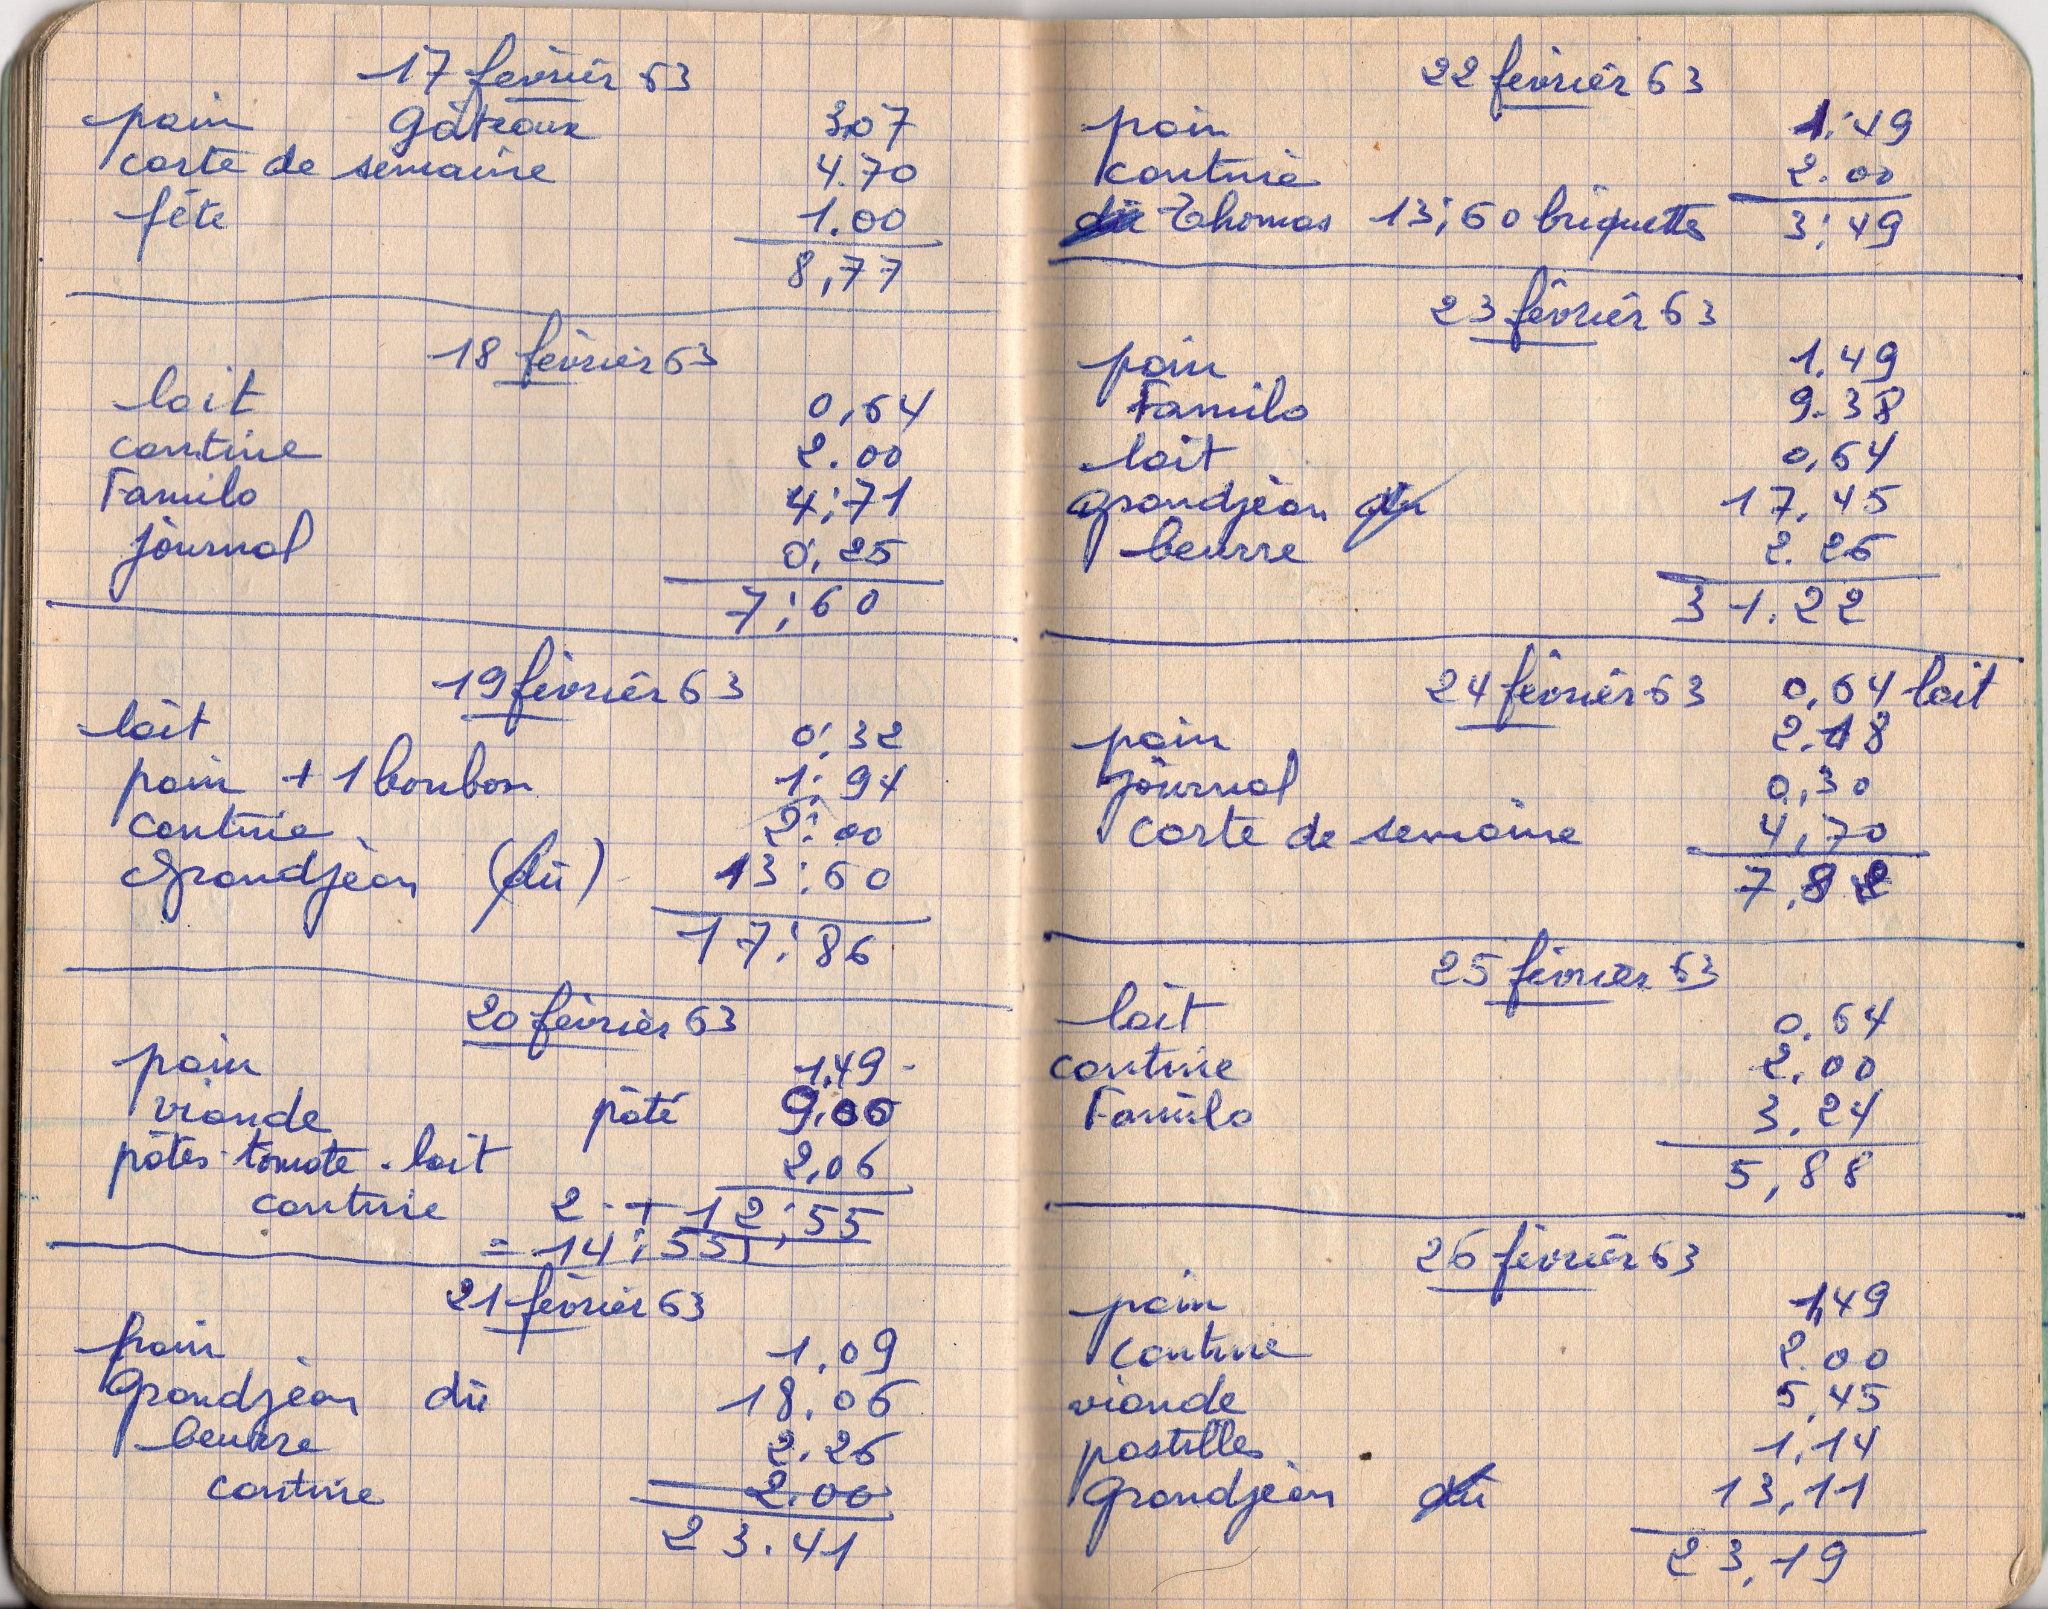 17 février 63
pain gâteaux 3,07
carte de semaine 4.70
fête 1.00
8,77
18 février 63
lait 0,64
cantine 2.00
Familo 4,71
journal 0,25
7,60
19 février 63
lait 0,32
pain + 1 bonbon 1,94
cantine 2,00
Grandjean (dû) 13,60
17,86
20 février 63
pain 1,49 -
viande pâté 9,00
pâtes - tomate - lait 2,06
cantine 2 + 12,55
= 14,55
21 février 63
pain 1,09
Grandjean dû 18,06
beurre 2.26
cantine 2.00
23.41
22 février 63
pain 1,49
cantine 2.00
dû Thomas 13,60 briquettes 3,49
23 février 63
pain 1.49
Familo 9.38
lait 0,64
Grandjean dû 17,45
beurre 2.26
31.22
24 février 63 0,64 lait
pain 2.18
journal 0,30
carte de semaine 4,70
7,82
25 février 63
lait 0.64
cantine 2,00
Familo 3,24
5,88
26 février 63
pain 1,49
cantine 2.00
viande 5,45
pastilles 1,14
Grandjean dû 13,11
23,19